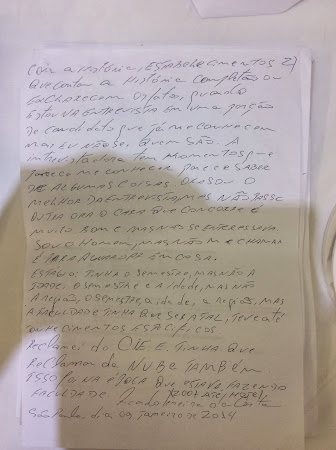 Com a História, Estabelecimentos 2)
que contam a História Completa ou
Esclarecem os fatos, quando
estou na entrevista em uma porção
de candidato que já me conhecem
mas eu não sei quem são. A
entrevista uma tem momentos que
parece me conhecer parece saber
de algumas coisas. Ora sou o
melhor da entrevista, mas não passo
outra ora o cara que concorre é
muito bom e mas não se interessava.
Sou o Homem, mas não me chamam
é para aguardar em casa.
Estágio: tinha o semestre, mas não a
idade. O semestre e a idade, mas não
a região, o semestre, a idade, a região, mas
a faculdade tinha que ser a tal, teve até
conhecimentos específicos
Reclamei do CIEE. E tinha que
reclamar do NUBE também
isso foi na época que estava fazendo
faculdade
São Paulo, dia 09 janeiro de 2014